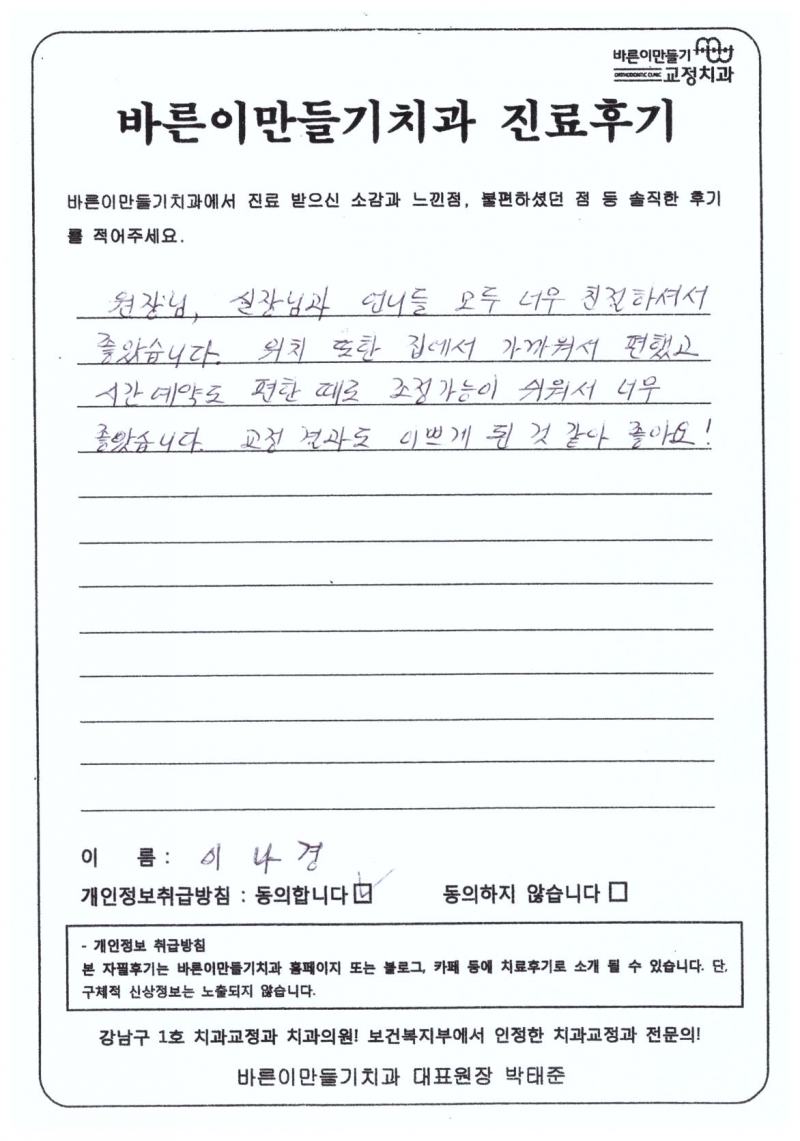 바른이만들기
ORTHODONTIC CLINIC 교정치과
바른이만들기치과 진료후기
바른이만들기치과에서 진료 받으신 소감과 느낀점, 불편하셨던 점 등 솔직한 후기
를 적어주세요.
원장님, 실장님과 언니들 모두 너무 친절하셔서
좋았습니다. 위치 또한 집에서 가까워서 편했고
시간예약도 편한 때로 조정가능이 쉬워서 너무
좋았습니다. 교정 결과도 이쁘게 된 것 같아 좋아요!
이 름 : 이나경
개인정보취급방침 : 동의합니다 ☑ 동의하지 않습니다 □
- 개인정보 취급방침
본 자필후기는 바른이만들기치과 홈페이지 또는 블로그, 카페 등에 치료후기로 소개 될 수 있습니다. 단,
구체적 신상정보는 노출되지 않습니다.
강남구 1호 치과교정과 치과의원! 보건복지부에서 인정한 치과교정과 전문의!
바른이만들기치과 대표원장 박태준